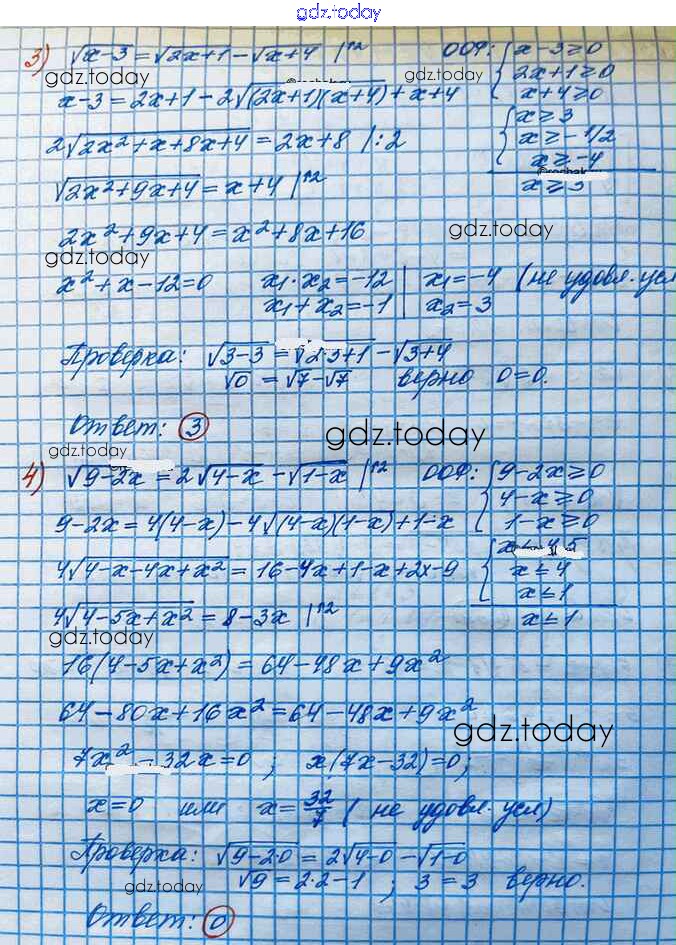 gdz.today
3) √x-3 = √2x+1 - √x+4 |^2 ООФ: { x-3≥0
gdz.today gdz.today 2x+1≥0
x-3 = 2x+1 - 2√(2x+1)(x+4) + x+4 x+4≥0
{ x≥3
2√2x²+x+8x+4 = 2x+8 |:2 x≥-1/2
x≥-4
√2x²+9x+4 = x+4 |^2 x≥3
2x²+9x+4 = x²+8x+16 gdz.today
gdz.today
x²+x-12=0 x₁·x₂=-12 | x₁=-4 (не удовл. усл
x₁+x₂=-1 | x₂=3
Проверка: √3-3 = √2·3+1 - √3+4
√0 = √7-√7 верно 0=0.
Ответ: 3
gdz.today
gdz.today
4) √9-2x = 2√4-x - √1-x |^2 ООФ: { 9-2x≥0
4-x≥0
9-2x = 4(4-x) - 4√(4-x)(1-x) + 1-x 1-x≥0
{ x≤4,5
4√4-x-4x+x² = 16-4x+1-x+2x-9 x≤4
x≤1
4√4-5x+x² = 8-3x |^2 x≤1
gdz.today gdz.today
16(4-5x+x²) = 64-48x+9x²
64-80x+16x² = 64-48x+9x²
gdz.today
7x²-32x=0 ; x(7x-32)=0;
x=0 или x=32/7 (не удовл. усл)
Проверка: √9-2·0 = 2√4-0 - √1-0
gdz.today √9 = 2·2-1 ; 3=3 верно.
Ответ: 0
gdz.today